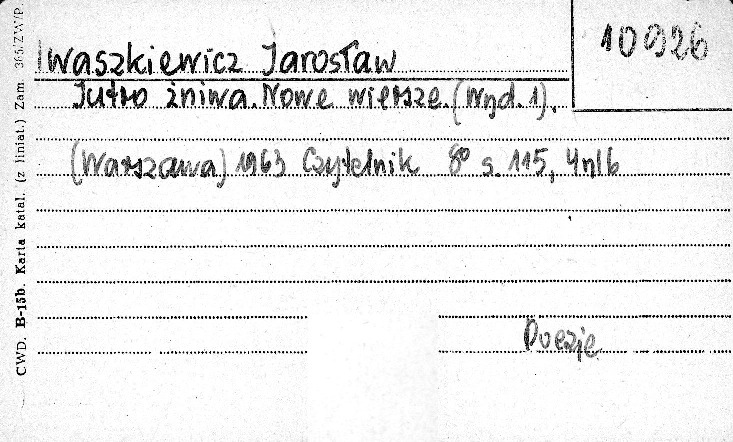 10926
Iwaszkiewicz Jarosław
Jutro żniwa. Nowe wiersze. (Wyd. 1).
(Warszawa) 1963 Czytelnik 8° s. 115, 4nlb
Poezje
CWD. B-15b. Karta katal. (z liniat.) Zam. 365/ZW/P.